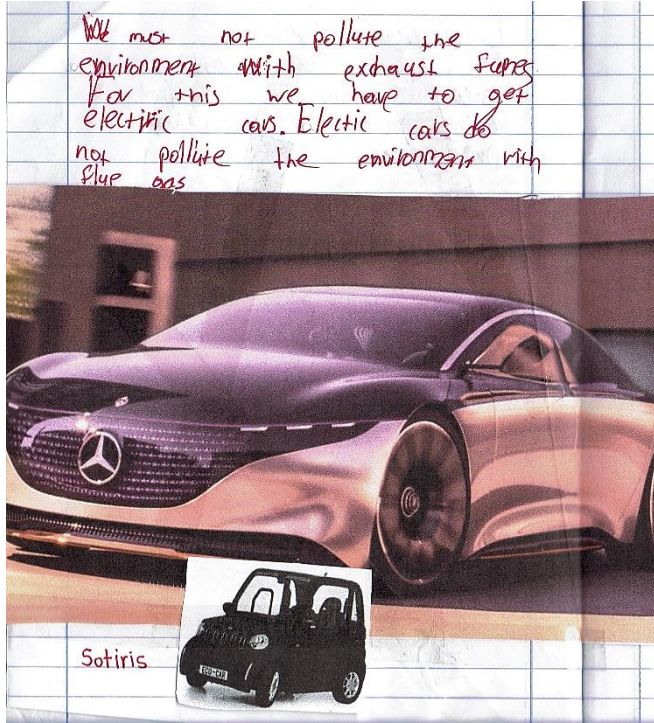 We must not pollute the
environment with exhaust fumes
For this we have to get
electiric cars. Electic cars do
not pollute the environment with
flue gas
ECO-CAR
Sotiris